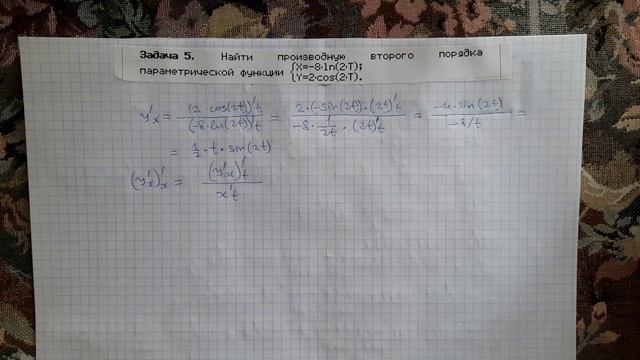 Задача 5. Найти производную второго порядка
параметрической функции {X=-8·ln(2·T);
{Y=2·cos(2·T).
y'x = (2·cos(2t))'t / (-8·ln(2t))'t = 2·(-sin(2t))·(2t)'t / -8·1/2t·(2t)'t = -4·sin(2t) / -8/t =
= 1/2·t·sin(2t)
(y'x)'x = (y'x)'t / x't